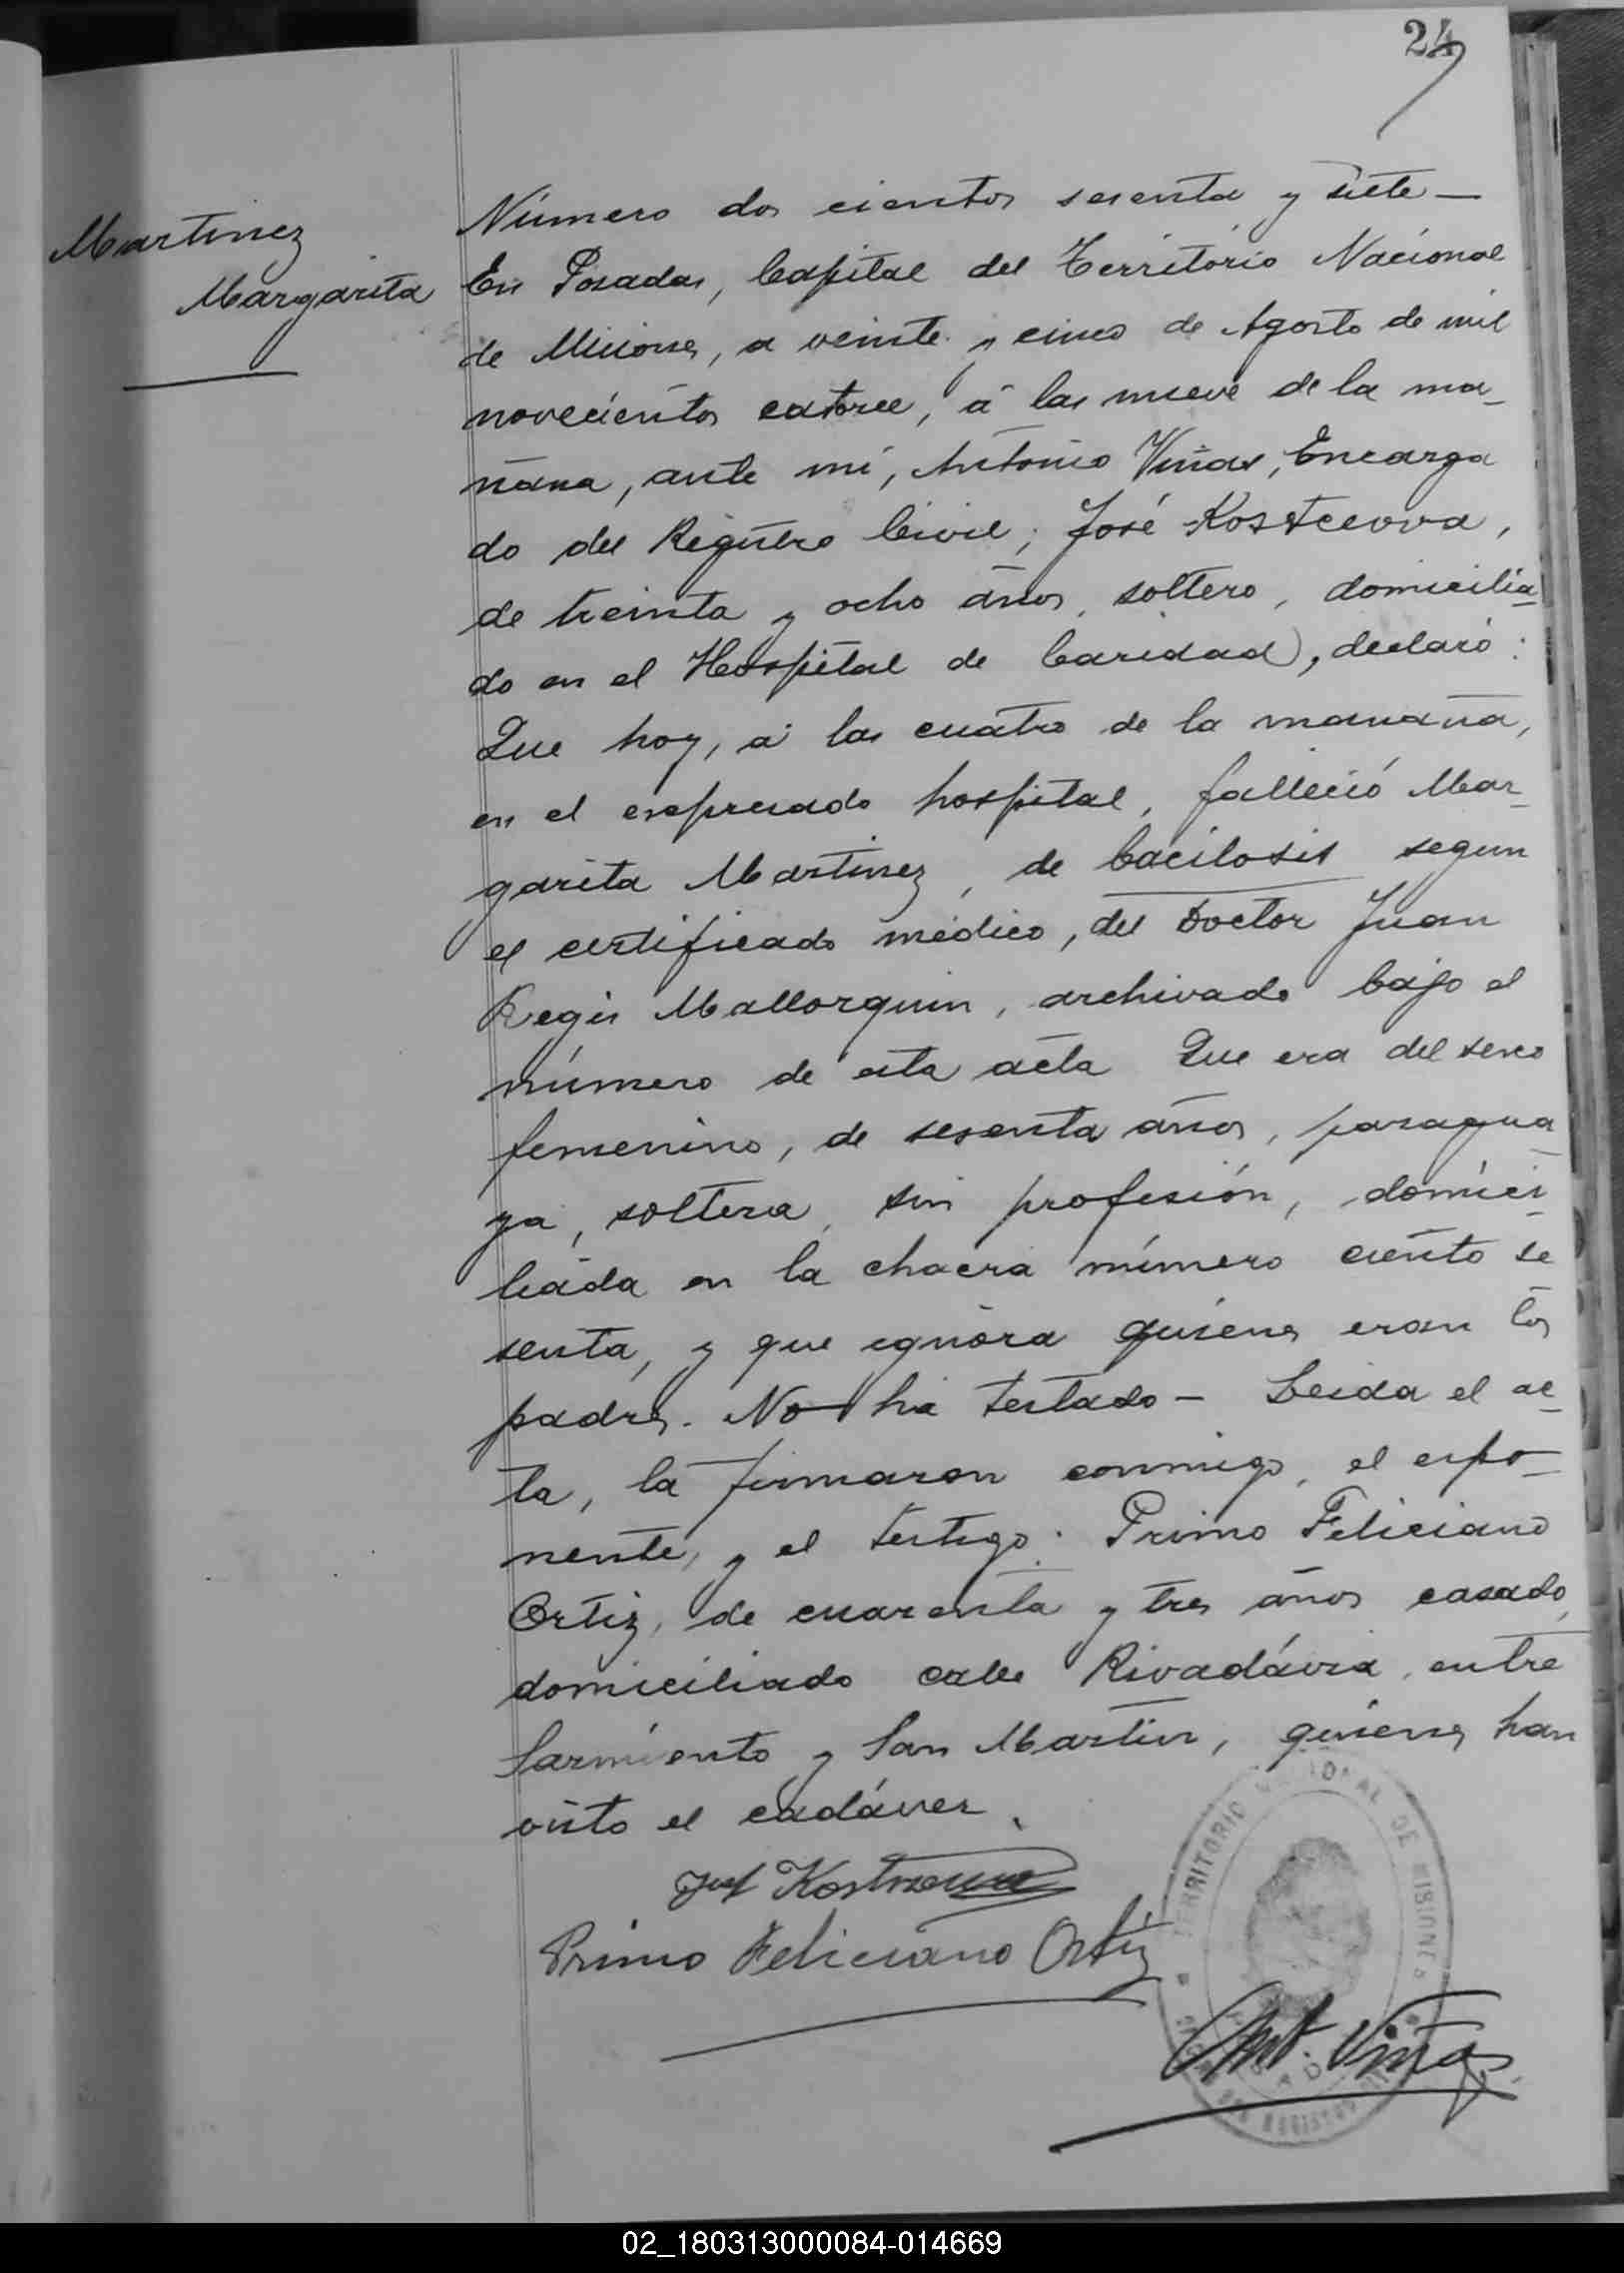 24
Martinez
Margarita
Número dos cientos sesenta y siete —
En Posadas, Capital del Territorio Nacional
de Misiones, a veinte y cinco de Agosto de mil
novecientos catorce, á las nueve de la ma-
ñana, ante mí, Antonio Viñas, Encarga
do del Registro Civil; José Kostceova,
de treinta y ocho años, soltero, domicilia-
do en el Hospital de Caridad, declaró:
Que hoy, á las cuatro de la mañana,
en el expresado hospital, falleció Mar-
garita Martinez, de bacilosis segun
el certificado médico, del Doctor Juan
Regis Mallorquin, archivado bajo el
número de esta acta Que era del sexo
femenino, de sesenta años, paragua-
ya, soltera, sin profesión, domici-
liada en la chacra número ciento se
senta, y que ignora quienes eran los
padres. No ha testado — Leida el ac-
ta, la firmaron conmigo, el expo-
nente, y el testigo: Primo Feliciano
Ortiz, de cuarenta y tres años casado,
domiciliado calle Rivadávia, entre
Sarmiento y San Martin, quienes han
visto el cadáver.
Primo Feliciano Ortiz
TERRITORIO NACIONAL DE MISIONES
Ant. Viñas
02_180313000084-014669